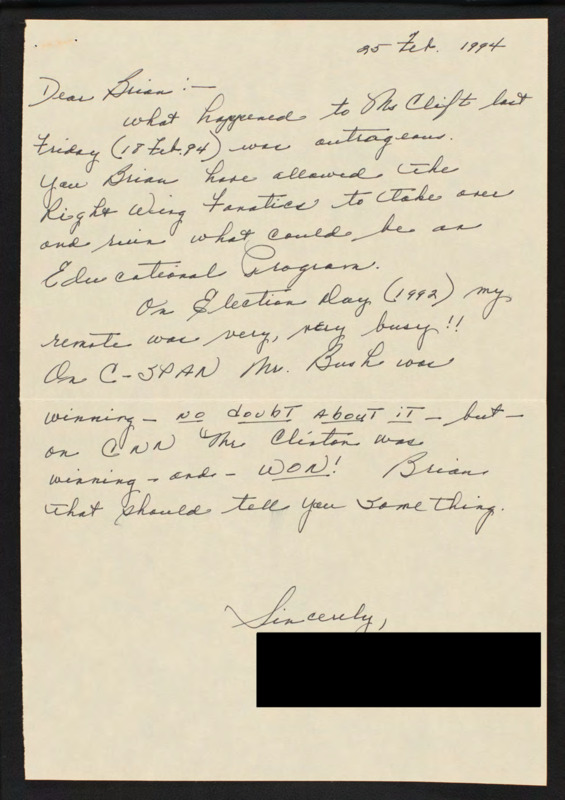 25 Feb. 1994
Dear Brian:—
What happened to Ms Clift last
Friday (18 Feb. 94) was outrageous.
You Brian have allowed the
Right Wing Fanatics to take over
and ruin what could be an
Educational Program.
On Election Day (1992) my
remote was very, very busy!!
On C-SPAN Mr. Bush was
winning — no doubt about it — but —
on CNN Mr Clinton was
winning - and - WON! Brian
that should tell you something.
Sincerely,